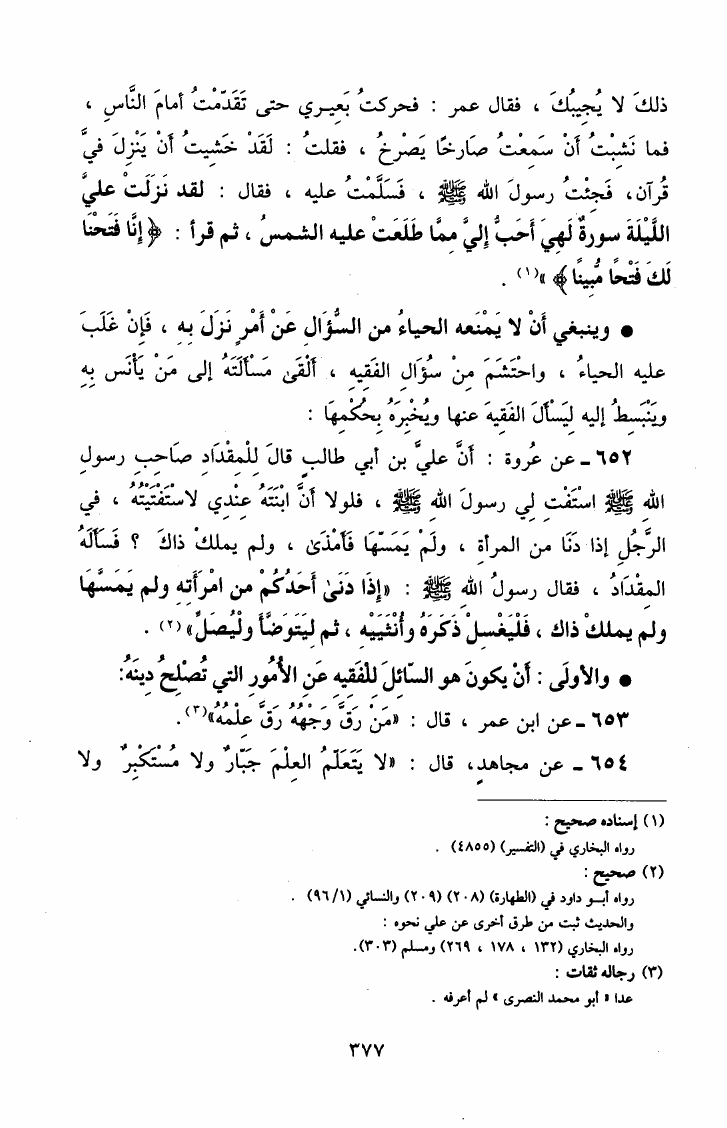 ذلكَ لا يُجِيبُكَ ، فقال عمر : فحركتُ بَعِيري حتى تَقَدَّمْتُ أمامَ النَّاسِ ،
فما نَشِبْتُ أَنْ سَمِعْتُ صَارخًا يَصْرخُ ، فقلتُ : لَقَدْ خَشِيتُ أَنْ يَنْزِلَ فيَّ
قُرآن، فَجِئْتُ رسولَ الله ﷺ ، فَسَلَّمْتُ عليه ، فقال : لقد نَزلَتْ عليَّ
اللَّيْلَةَ سورةٌ لَهِيَ أَحَبُّ إليَّ مِمَّا طَلَعَتْ عليه الشمسُ ، ثم قرأ : ﴿ إِنَّا فَتَحْنَا
لَكَ فَتْحًا مُّبِينًا ﴾ »(١) .
● وينبغي أَنْ لا يَمْنَعه الحياءُ من السؤَال عَنْ أَمْرٍ نَزلَ به ، فَإِنْ غَلَبَ
عليه الحياءُ ، واحْتَشَمَ مِنْ سُؤَالِ الفَقِيهِ ، أَلْقَىٰ مَسْأَلَتَهُ إلى مَنْ يَأْنَس بِهِ
ويَنْبَسِطُ إليه لِيَسْأَلَ الفَقِيهَ عنها ويُخْبِرَهُ بِحُكْمِهَا :
٦٥٢ ـ عن عُروة : أَنَّ عليَّ بن أبي طالبٍ قالَ لِلْمِقْدَادِ صَاحِبِ رسولِ
الله ﷺ اسْتَفْتِ لِي رسولَ الله ﷺ ، فلولا أَنَّ ابْنَتَهُ عِنْدِي لاسْتَفْتَيْتُهُ ، في
الرَّجُلِ إذا دَنَا من المرأةِ ، ولَمْ يَمَسّهَا فَأَمْذَىٰ ، ولم يملكْ ذاكَ ؟ فَسَأَلَهُ
المِقْدَادُ ، فقال رسولُ الله ﷺ : «إِذَا دَنَىٰ أَحَدُكُمْ من امْرَأَتِه ولم يَمَسَّهَا
ولم يملكْ ذاك ، فَلْيَغْسِلْ ذَكَرَهُ وأُنْثَيَيْهِ ، ثم ليَتَوَضَّأ ولْيُصَلِّ»(٢) .
● والأولَى : أَنْ يكونَ هو السَّائلَ لِلْفَقِيهِ عَنِ الأُمُورِ التي تُصْلِحُ دِينَهُ:
٦٥٣ ـ عن ابن عمر ، قال : «مَنْ رَقَّ وَجْهُهُ رَقَّ عِلْمُهُ»(٣).
٦٥٤ ـ عن مجاهدٍ، قال : «لا يَتَعَلَّمُ العِلْمَ جَبَّارٌ ولا مُسْتَكْبِرٌ ولا
(١) إسناده صحيح :
رواه البخاري في (التفسير) (٤٨٥٥) .
(٢) صحيح :
رواه أبو داود في (الطهارة) (٢٠٨) (٢٠٩) والنسائي (٩٦/١) .
والحديث ثبت من طرق أخرى عن علي نحوه :
رواه البخاري (١٣٢ ، ١٧٨ ، ٢٦٩) ومسلم (٣٠٣).
(٣) رجاله ثقات :
عدا « أبو محمد النصرى » لم أعرفه .
٣٧٧